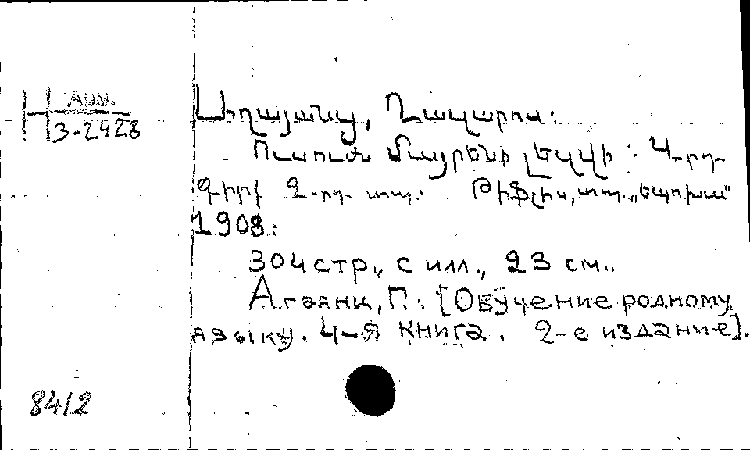 Арм.
3-2428
Աղայանց, Ղազարոս:
Ուսումն մայրենի լեզվի: 4-րդ
գիրք 2-րդ տպ. Թիֆլիս, տպ. „Էպոխա"
1908:
304 стр., с илл., 23 см..
Агаянц, П. [Обучение родному
языку. 4-я книга. 2-е издание].
8412